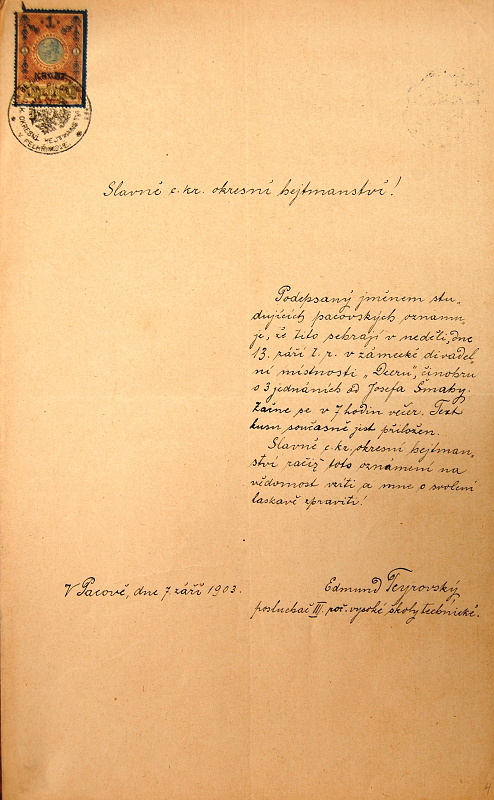 1
C. K. OKRESNÍ HEJTMANSTVÍ
V PELHŘIMOVĚ.
Slavné c. kr. okresní hejtmanství!
Podepsaný jménem stu„
dujících pacovských oznamu„
je, že tito sehrají v neděli, dne
13. září t. r. v zámecké divadel„
ní místnosti „Dceru“, činohru
o 3 jednáních od Josefa Šmahy.
Začne se v 7 hodin večer. Text
kusu současně jest přiložen.
Slavné c. kr. okresní hejtman„
ství račiž toto oznámení na
vědomost vzíti a mne o svolení
laskavě zpraviti!
V Pacově, dne 7. září 1903.
Edmund Teyrovský,
posluchač III. roč. vysoké školy technické.